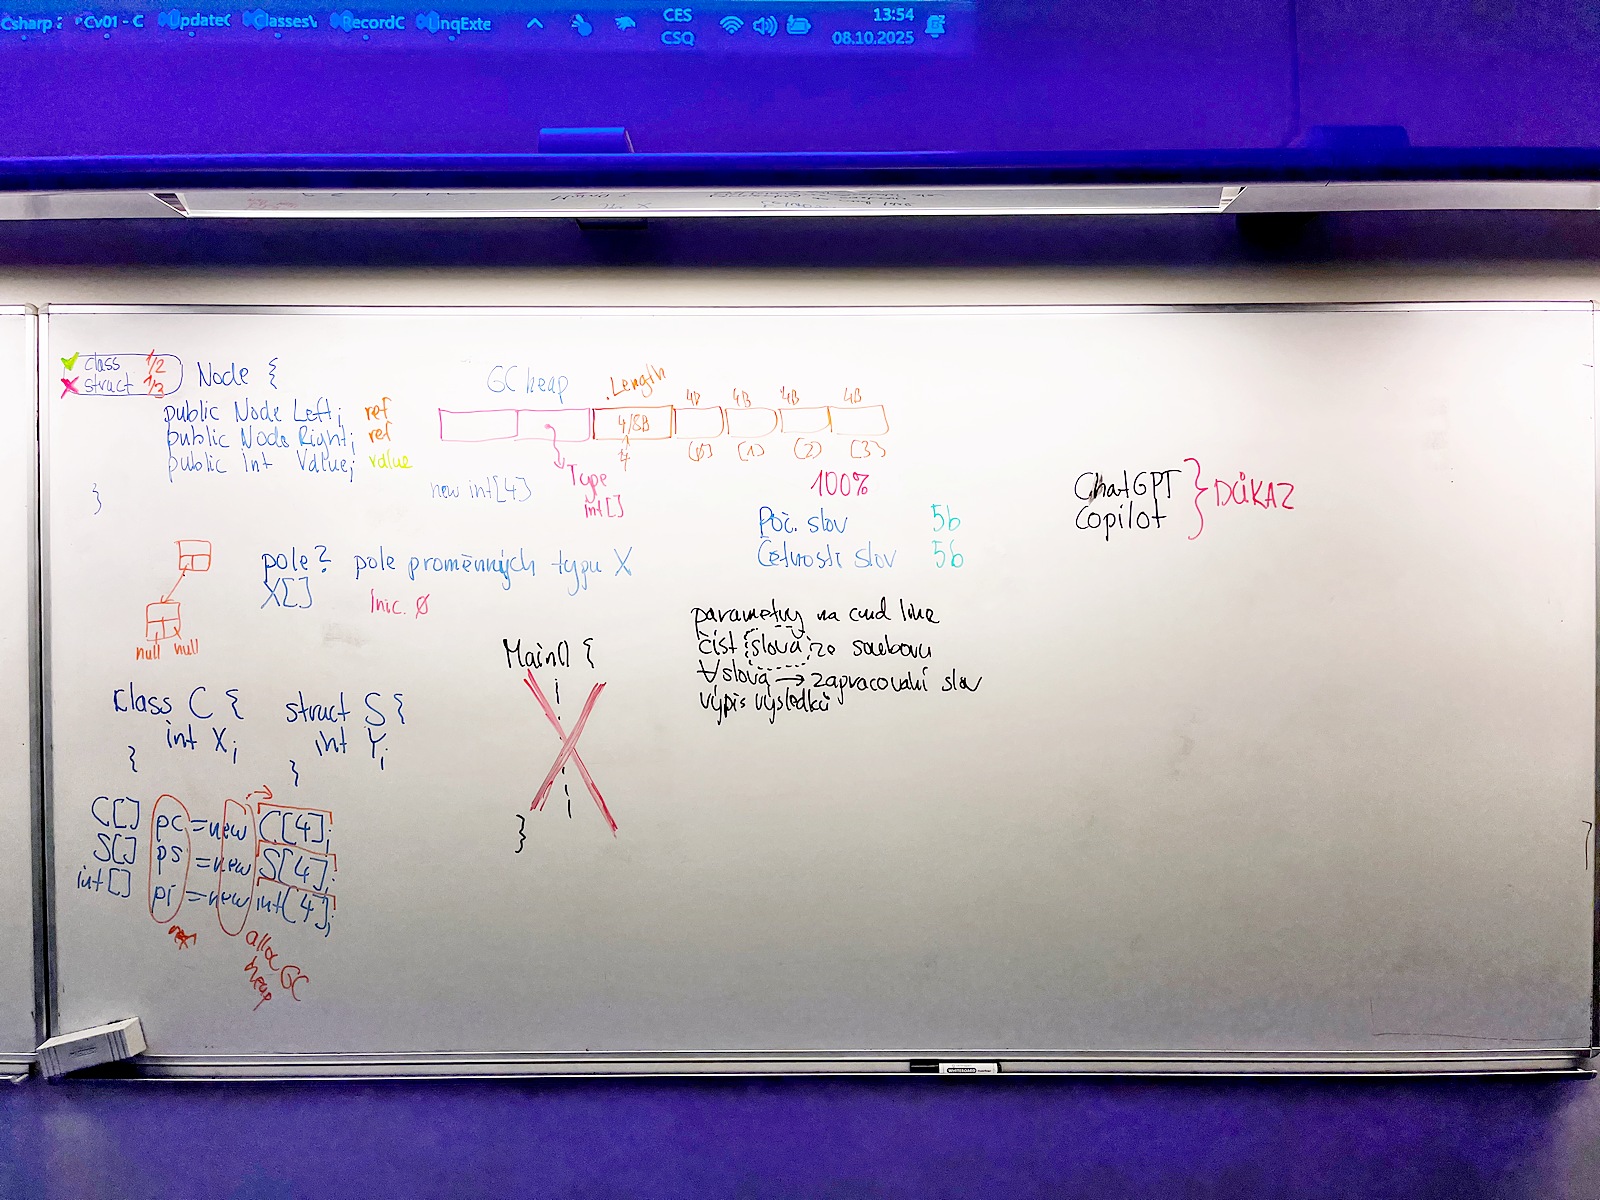 Csharp
Cv01 - C
UpdateC
ClassesV
RecordC
LinqExte
CES
CSQ
13:54
08.10.2025
class 1/2
struct 1/3
Node {
public Node Left; ref
public Node Right; ref
public int Value; value
}
GC heap
.Length
4B 4B 4B 4B
4/8B
4
[0] [1] [2] [3]
new int[4]
Type
int[]
100%
Poč. slov 5b
Četnosti slov 5b
ChatGPT
Copilot
DŮKAZ
pole? pole proměnných typu X
X[]
Inic. 0
null null
parametry na cmd line
číst slova ze souboru
∀slova → zapracování slov
výpis výsledků
Main() {
}
class C {
int X;
}
struct S {
int Y;
}
C[] pc = new C[4];
S[] ps = new S[4];
int[] pi = new int[4];
GC
heap